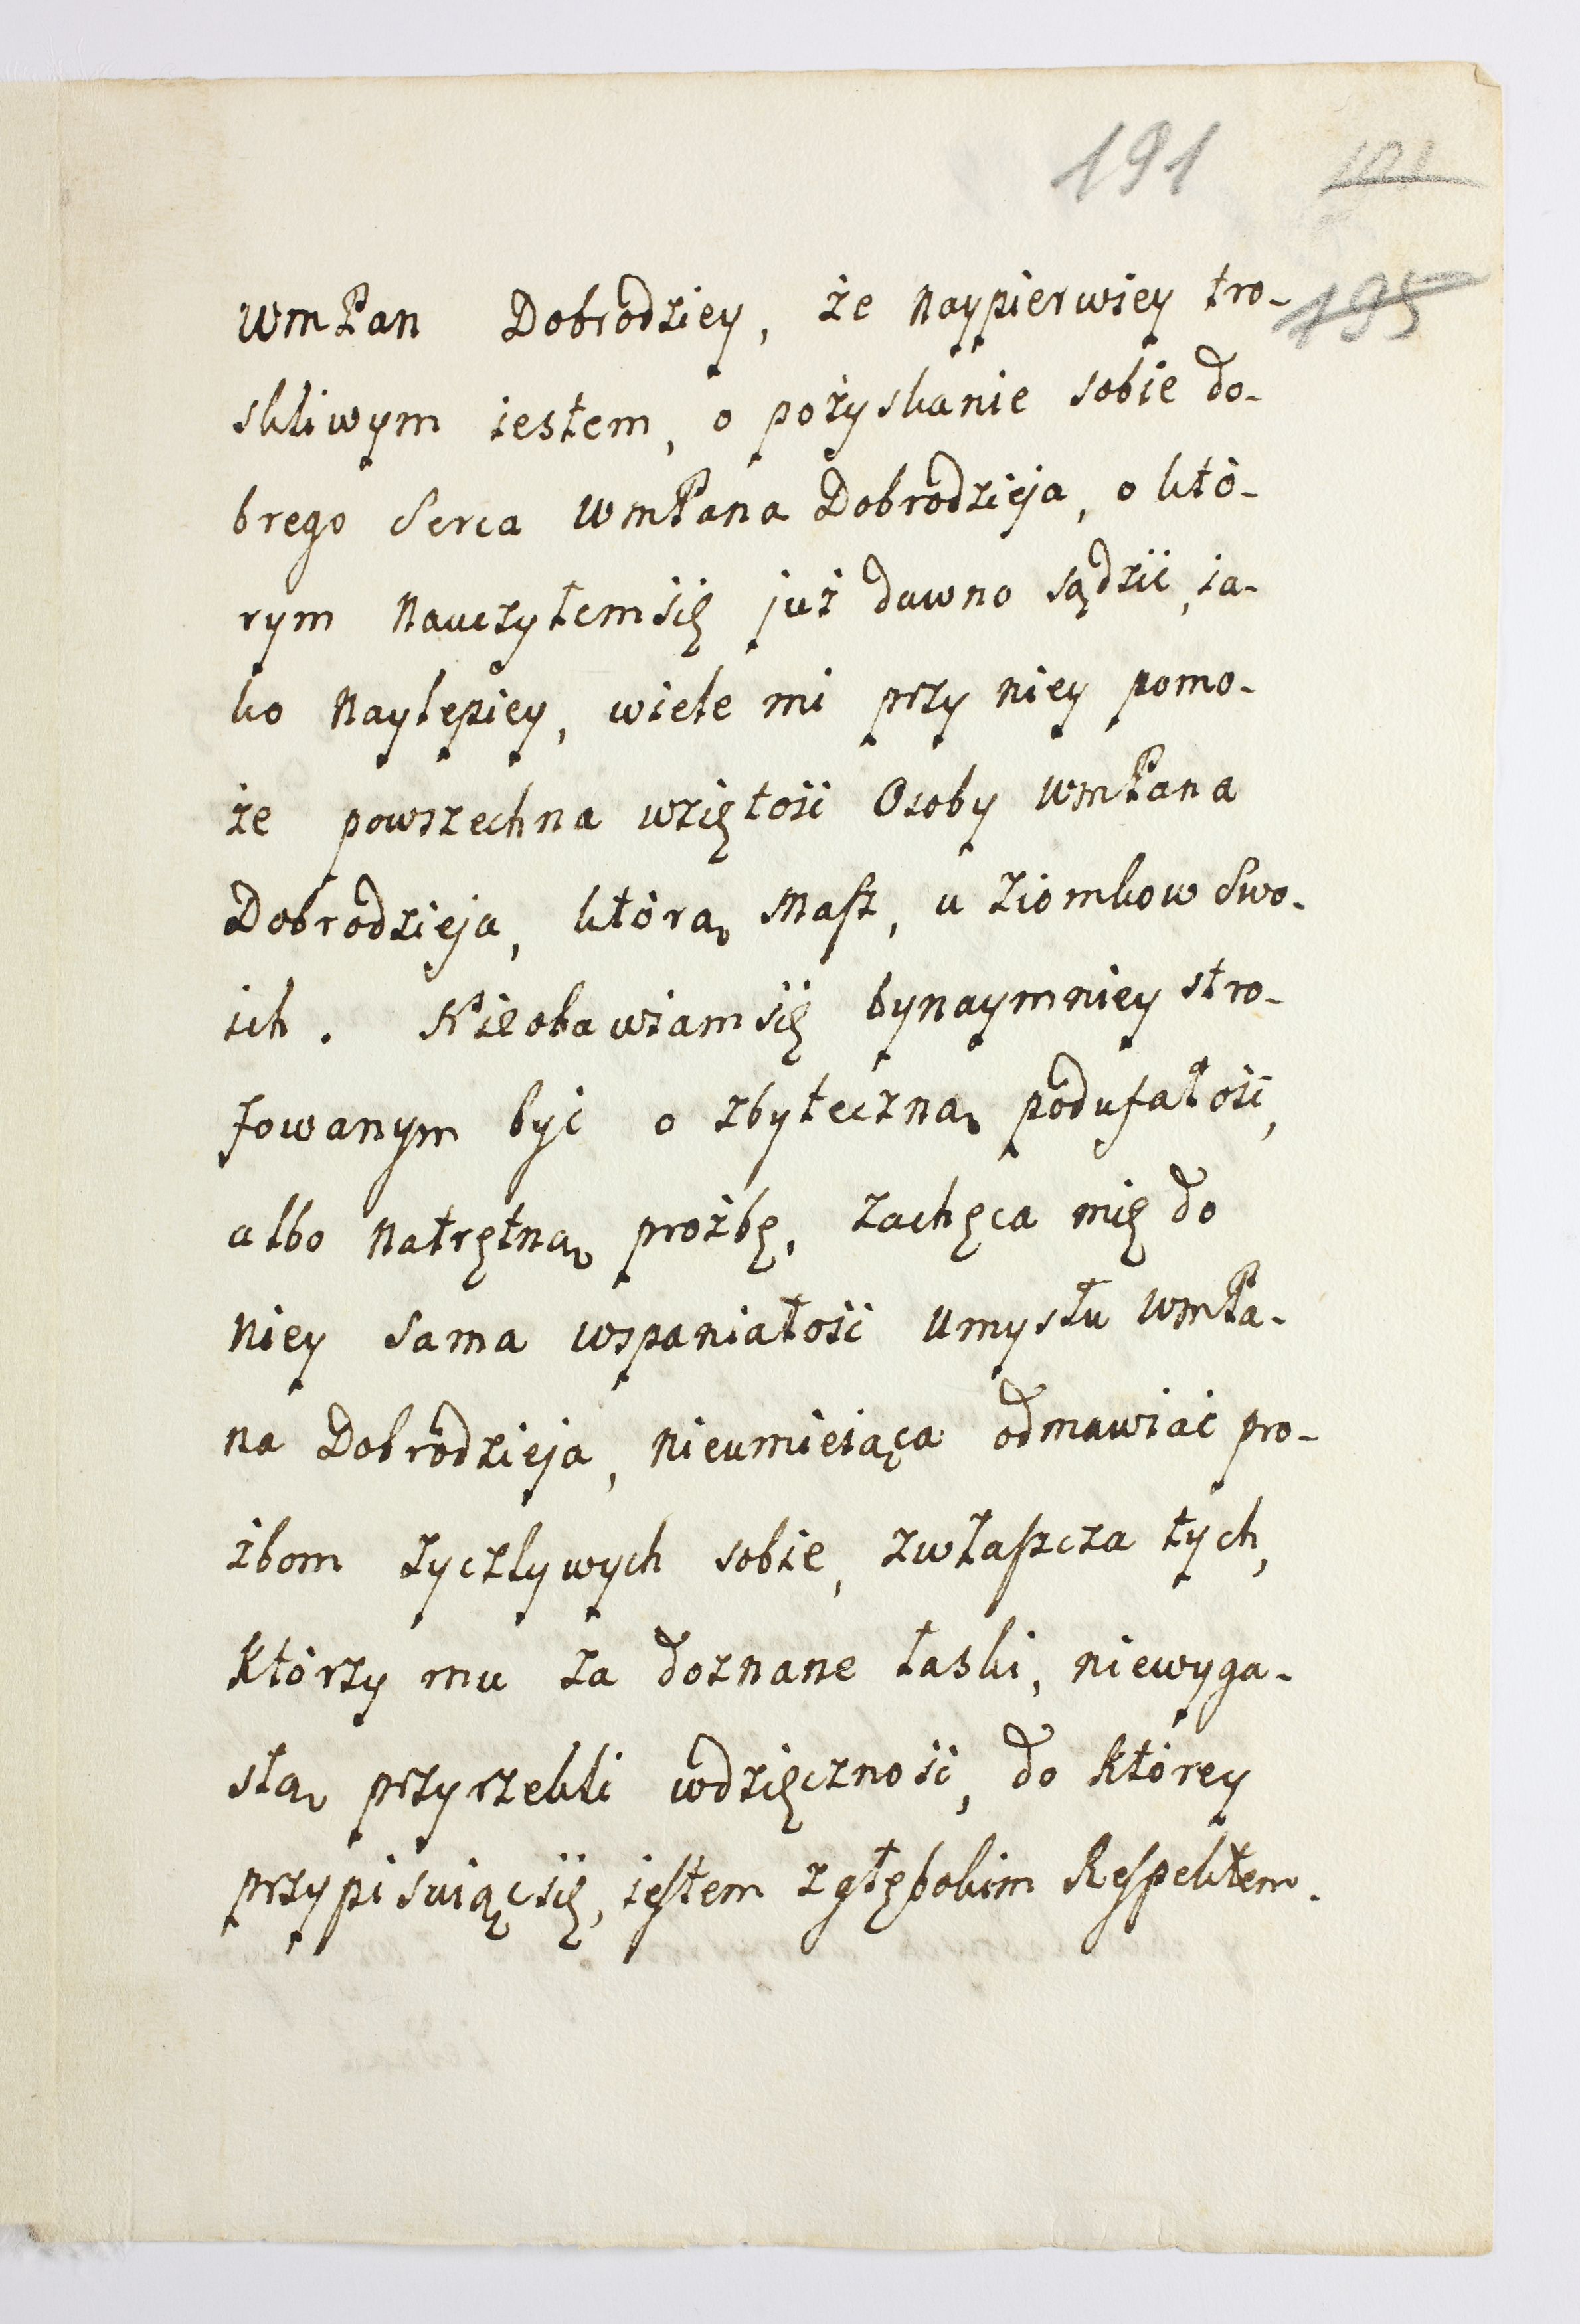 191
191
195
WmPan Dobrodziey, że Naypierwiey tro-
skliwym iestem, o pozyskanie sobie do-
brego Serca WmPana Dobrodzieja, o któ-
rym Nauczyłemsię już dawno sądzić, ia-
ko Naylepiey, wiele mi przy niey pomo-
że powszechna wziętość Osoby WmPana
Dobrodzieja, którą Masz, u Ziomkow Swo-
ich. Nieobawiamsię bynaymniey stro-
fowanym być o zbyteczną podufałość,
albo Natrętną prożbę, zachęca mię do
niey Sama wspaniałość Umysłu WmPa-
na Dobrodzieja, Nieumieiąca odmawiać pro-
żbom życzlywych sobie, zwłaszcza tych,
Którzy mu za doznane łaski, niewyga-
słą przyrzekli wdzięczność, do Którey
przypisuiącsię, iestem z głębokim Respektem.